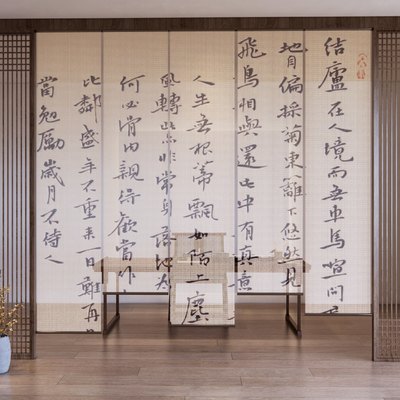 結廬在人境而無車馬喧問
地自偏採菊東籬下悠然見
飛鳥相與還此中有真意
人生無根蒂飄如陌上塵
風轉此非常身落地為
何必骨肉親得歡當作
比鄰盛年不重來一日難再
當勉勵歲月不待人